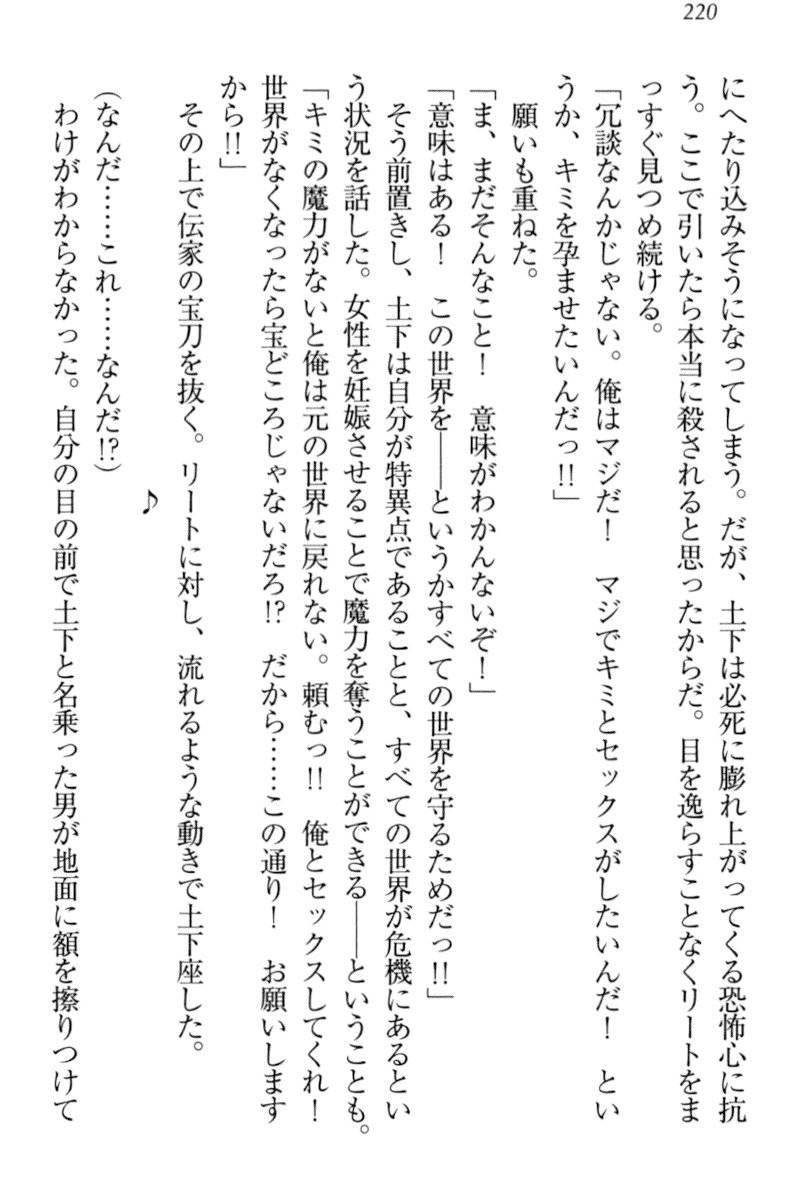 220
にへたり込みそうになってしまう。だが、土下は必死に膨れ上がってくる恐怖心に抗
う。ここで引いたら本当に殺されると思ったからだ。目を逸らすことなくリートをま
っすぐ見つめ続ける。
「冗談なんかじゃない。俺はマジだ！　マジでキミとセックスがしたいんだ！　とい
うか、キミを孕ませたいんだっ!!」
　願いも重ねた。
「ま、まだそんなこと！　意味がわかんないぞ！」
「意味はある！　この世界を――というかすべての世界を守るためだっ!!」
　そう前置きし、土下は自分が特異点であることと、すべての世界が危機にあるとい
う状況を話した。女性を妊娠させることで魔力を奪うことができる――ということも。
「キミの魔力がないと俺は元の世界に戻れない。頼むっ!!　俺とセックスしてくれ！
世界がなくなったら宝どころじゃないだろ!?　だから……この通り！　お願いします
から!!」
　その上で伝家の宝刀を抜く。リートに対し、流れるような動きで土下座した。
♪
（なんだ……これ……なんだ!?）
　わけがわからなかった。自分の目の前で土下と名乗った男が地面に額を擦りつけて